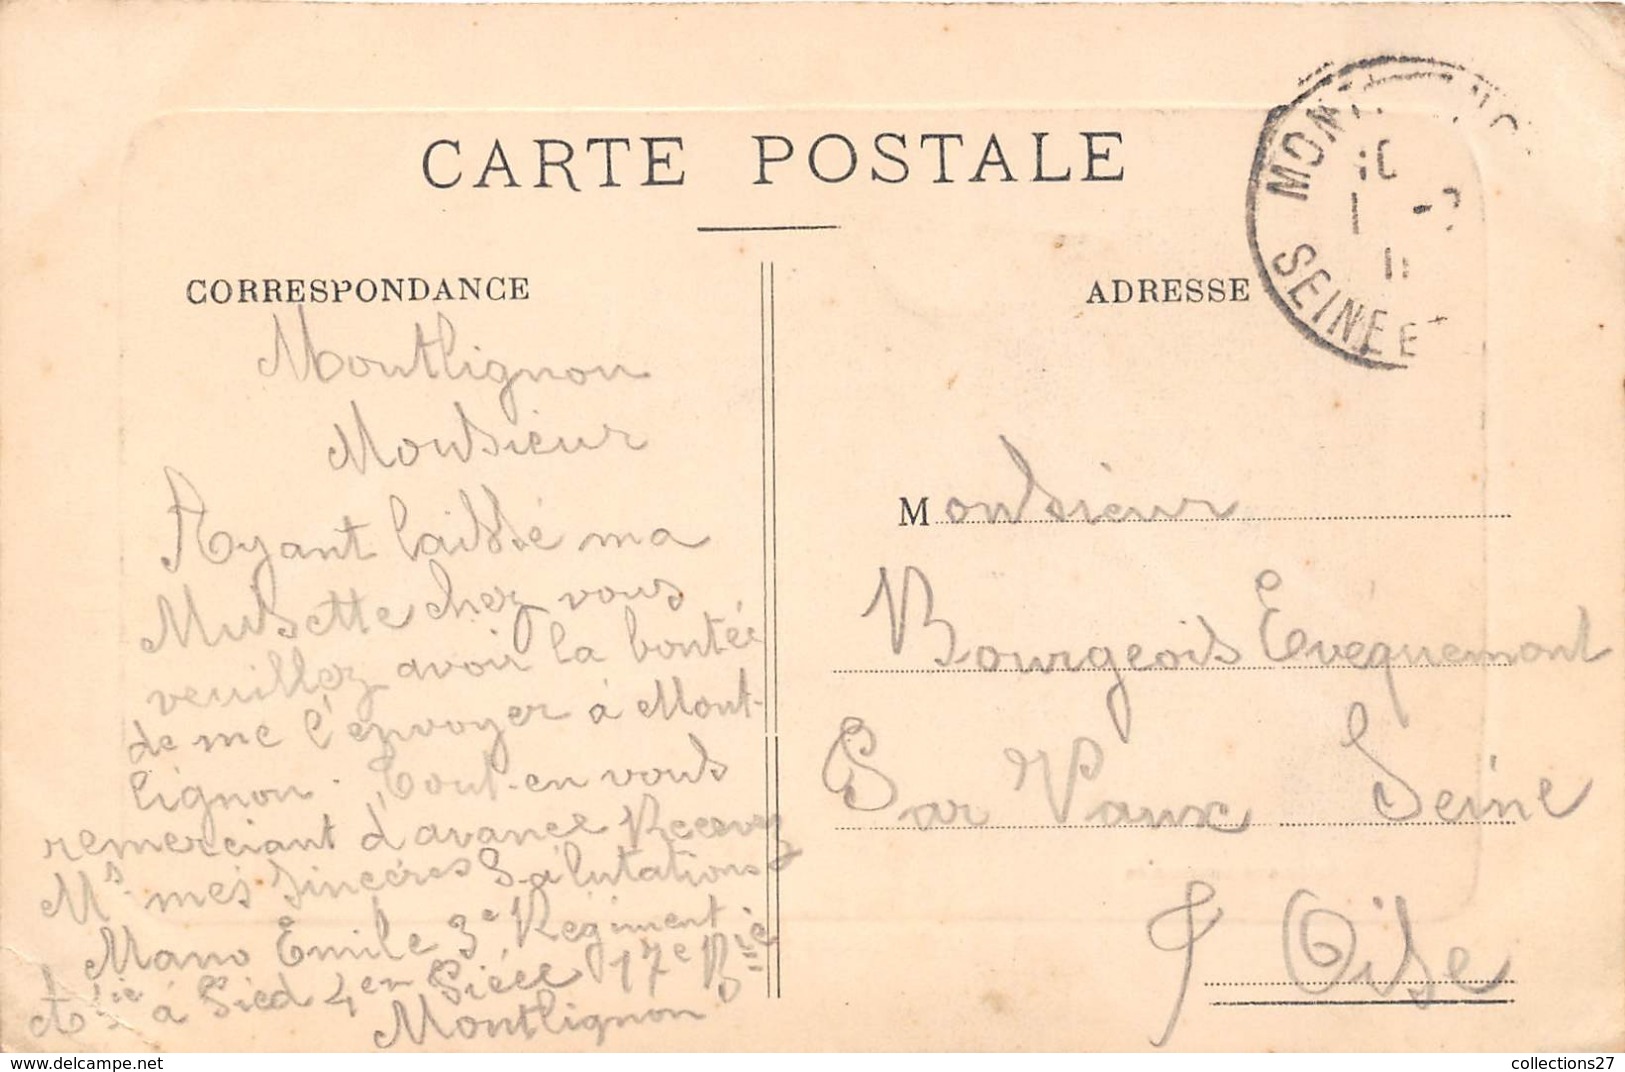 CARTE POSTALE
CORRESPONDANCE
Montlignon
Monsieur
Ayant laissé ma
Musette chez vous
veuillez avoir la bontée
de me l'envoyer à Mont-
lignon. Tout en vous
remerciant d'avance Recevez
Mr mes sincéres Salutations
Mano Emile 3e Régiment
Atie à Pied 4e en Piéce 17e Bie
Montlignon
ADRESSE
Monsieur
Bourgeois Evequemont
Par Vaux Seine
& Oise
SEINE ET
collections27